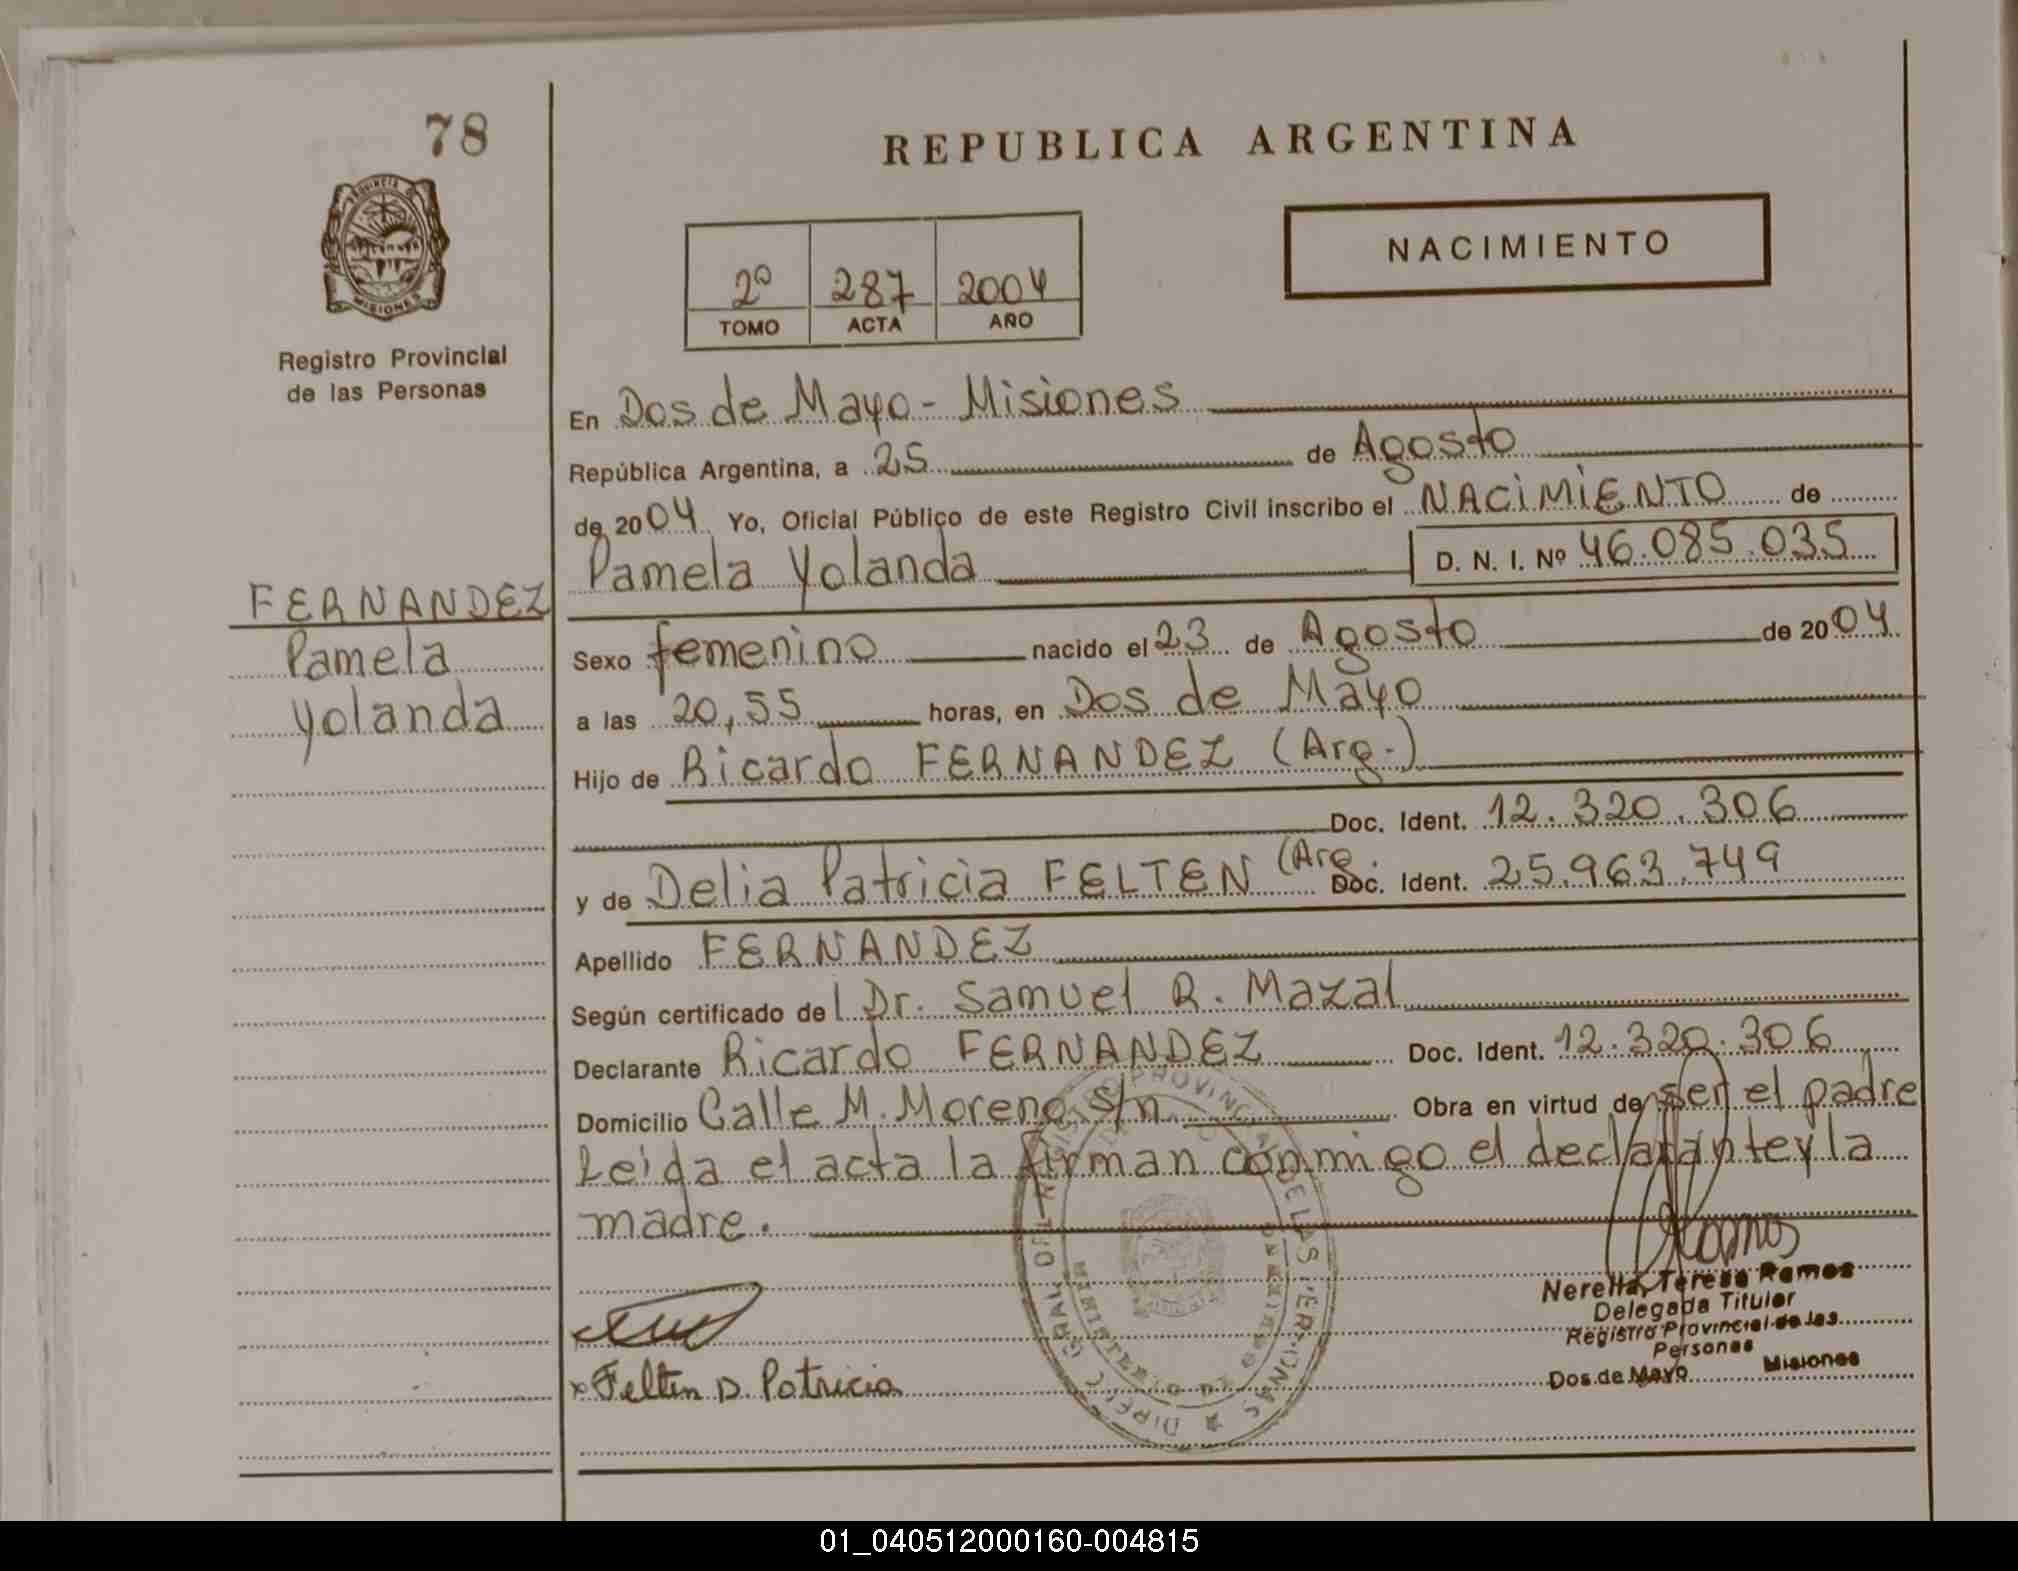 78
REPUBLICA ARGENTINA
PROVINCIA DE MISIONES
NACIMIENTO
2º 287 2004
TOMO ACTA AÑO
Registro Provincial
de las Personas
En Dos de Mayo - Misiones
República Argentina, a 25 de Agosto
de 2004 Yo, Oficial Público de este Registro Civil inscribo el NACIMIENTO de
Pamela Yolanda D. N. I. Nº 46.085.035
FERNANDEZ
Pamela
Yolanda
Sexo femenino nacido el 23 de Agosto de 2004
a las 20,55 horas, en Dos de Mayo
Hijo de Ricardo FERNANDEZ (Arg.)
Doc. Ident. 12.320.306
y de Delia Patricia FELTEN (Arg. Doc. Ident. 25.963.749
Apellido FERNANDEZ
Según certificado de l Dr. Samuel R. Mazal
Declarante Ricardo FERNANDEZ Doc. Ident. 12.320.306
Domicilio Calle M. Moreno s/n Obra en virtud de ser el padre
Leida el acta la firman conmigo el declarante y la
madre.
Ramos
Nerella Teresa Ramos
Delegada Titular
Registro Provincial de las
Personas
Dos de Mayo Misiones
x Felten D. Patricia
01_040512000160-004815